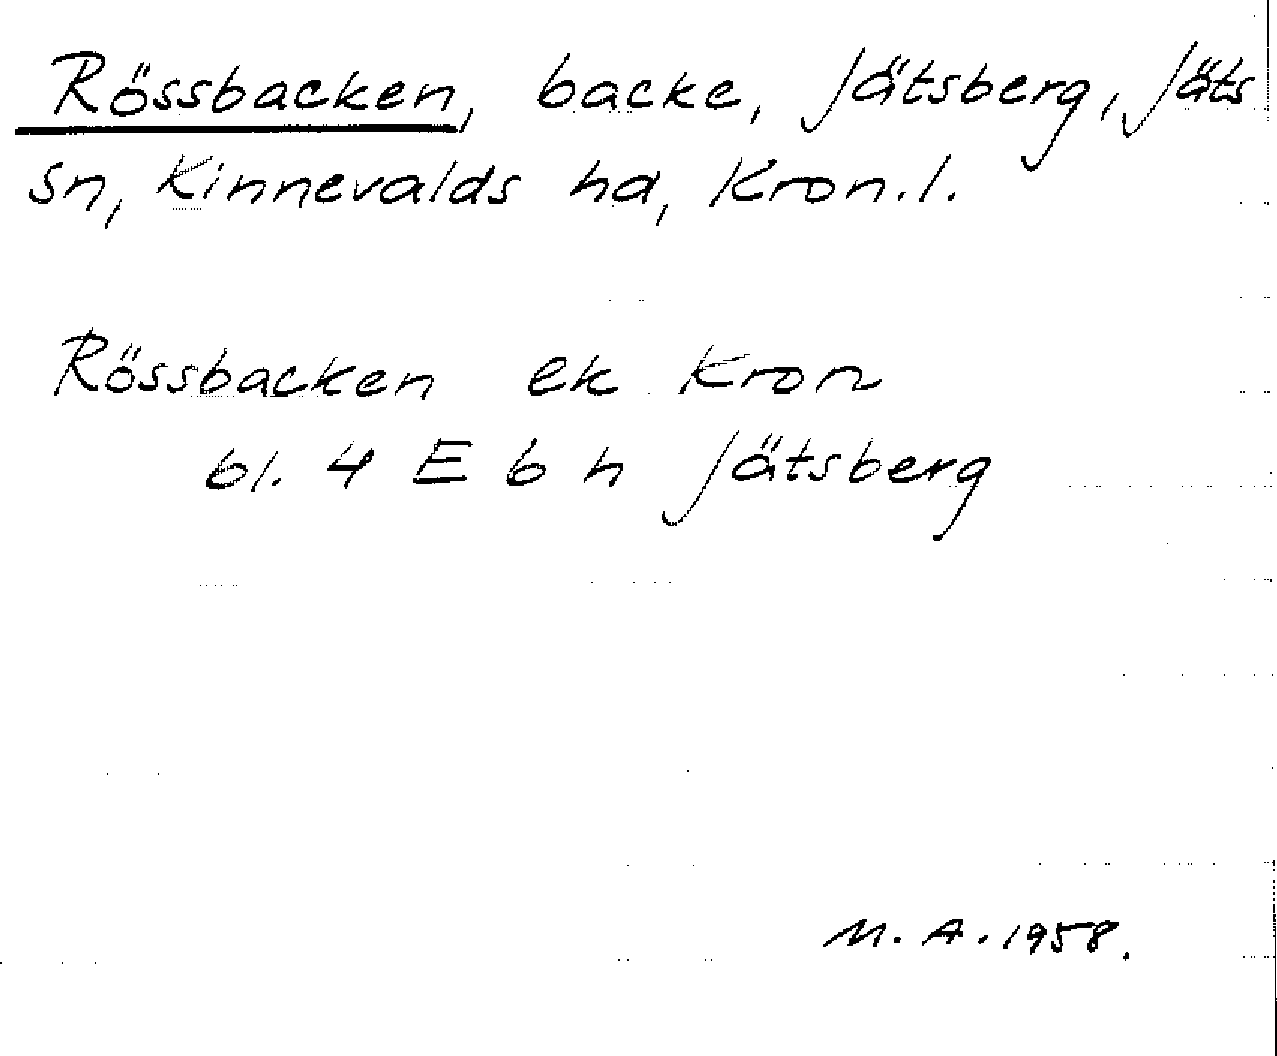 Rössbacken, backe, Jätsberg, Jäts
sn, Kinnevalds hd, Kron.l.
Rössbacken ek Kron
bl. 4 E b h Jätsberg
M. A. 1958.